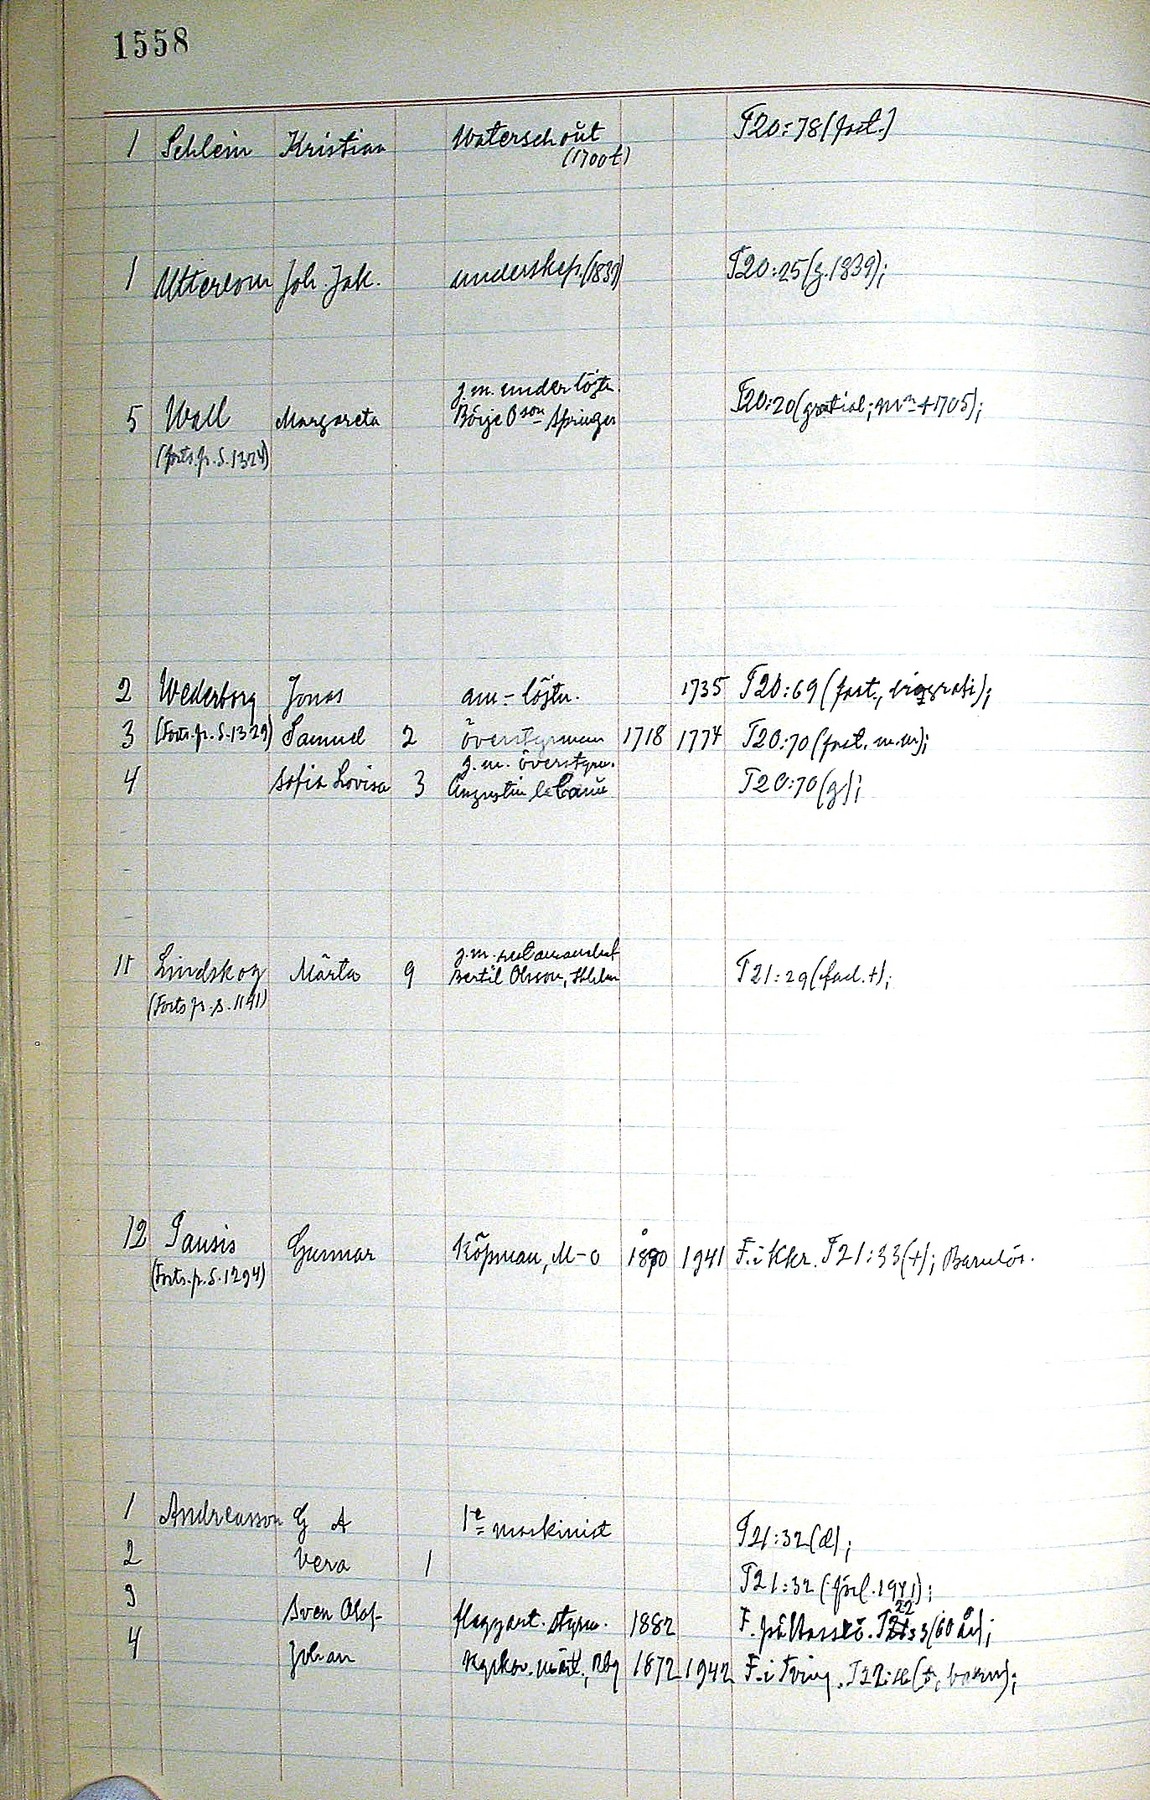 1558
1 Schlein Kristian Waterschout T20:78 (fast.)
(1700t)
1 Utterbom Joh. Jak. underskep. (1839) T20:25 (g. 1839);
g.m. underlöjtn.
5 Wall Margareta Börje Oson Springer T20:20 (gratial; m + 1705);
(forts. fr. S. 1324)
2 Wederborg Jonas am-löjtn. 1735 T20:69 (fast., biografi);
3 (Forts. fr. S. 1329) Samuel 2 överstyrman 1718 1774 T20:70 (fast. m.m);
g.m. överstyrm.
4 Sofia Lovisa 3 Augustin le T20:70 (g);
g.m.
11 Lindskog Märta 9 Bertil Olsson, T21:29 (fad. †);
(Forts fr. s. 1191)
12 Pausis Gunnar Köpman, M-o 1890 1941 F. i Kkr. T21:33 (†); Barnlös.
(Forts. fr. S. 1294)
1 Andreasson G A 1e maskinist T21:32 (d);
2 Vera 1 T21:32 (förl. 1941);
3 Sven Olof flaggart. styrm. 1882 F. på T22:3 (60 år);
4 Johan Kyrkov. 1872 1942 F. i Tving. T22: (†, barn);